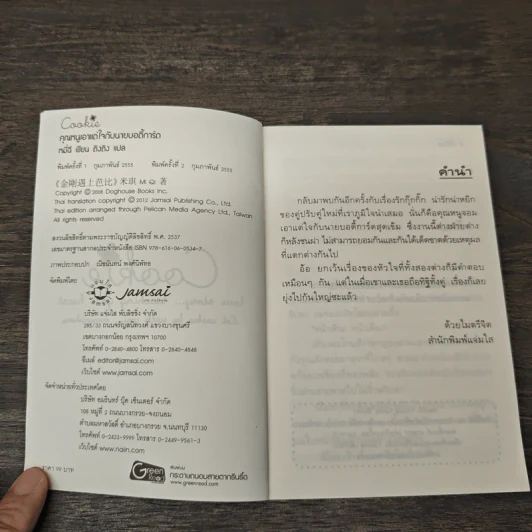 Cookie
คุณหนูเอาแต่ใจกับนายบอดี้การ์ด
หมี่ฉี เขียน ถิงถิง แปล
พิมพ์ครั้งที่ 1 กุมภาพันธ์ 2555 พิมพ์ครั้งที่ 2 กุมภาพันธ์ 2555
《金剛遇上芭比》米琪 Mi Qi 著
Copyright © 2008 Doghouse Books Inc.
Thai translation copyright © 2012 Jamsai Publishing Co., Ltd.
Thai edition arranged through Pelican Media Agency Ltd., Taiwan
All rights reserved
สงวนลิขสิทธิ์ตามพระราชบัญญัติลิขสิทธิ์ พ.ศ. 2537
เลขมาตรฐานสากลประจำหนังสือ ISBN 978-616-06-0534-7
ภาพประกอบปก
จัดพิมพ์โดย
Jamsai
บริษัท แจ่มใส พับลิชชิ่ง จำกัด
285/33 ถนนจรัญสนิทวงศ์ แขวงบางขุนศรี
เขตบางกอกน้อย กรุงเทพฯ 10700
โทรศัพท์ 0-2840-4800 โทรสาร 0-2840-4848
อีเมล์ editor@jamsai.com
เว็บไซต์ www.jamsai.com
จัดจำหน่ายทั่วประเทศโดย
บริษัท อมรินทร์ บุ๊ค เซ็นเตอร์ จำกัด
108 หมู่ที่ 2 ถนนบางกรวย-จงถนอม
ตำบลมหาสวัสดิ์ อำเภอบางกรวย จ.นนทบุรี 11130
โทรศัพท์ 0-2423-9999 โทรสาร 0-2449-9561-3
เว็บไซต์ www.naiin.com
ราคา 99 บาท
Green Read
พิมพ์ด้วย
กระดาษถนอมสายตากรีนรี้ด
www.greenread.com
คำนำ
กลับมาพบกันอีกครั้งกับเรื่องรักกุ๊กกิ๊ก น่ารักน่าหยิก
ของคู่ปรับคู่ใหม่ที่เราภูมิใจนำเสนอ นั่นก็คือคุณหนูจอม
เอาแต่ใจกับนายบอดี้การ์ดสุดเข้ม ซึ่งงานนี้ต่างฝ่ายต่าง
ก็หลังชนฝา ไม่สามารถยอมกันและกันได้เด็ดขาดด้วยเหตุผล
ที่แตกต่างกันไป
อ้อ ยกเว้นเรื่องของหัวใจที่ทั้งสองต่างก็มีคำตอบ
เหมือนๆ กัน แต่ในเมื่อเขาและเธอถือทิฐิทั้งคู่ เรื่องก็เลย
ยุ่งไปกันใหญ่ซะแล้ว
ด้วยไมตรีจิต
สำนักพิมพ์แจ่มใส